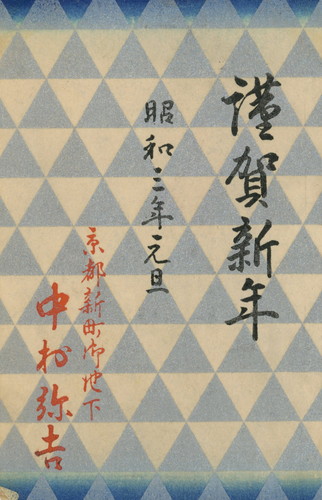 謹賀新年
昭和三年元旦
京都新町御池下
中村弥吉